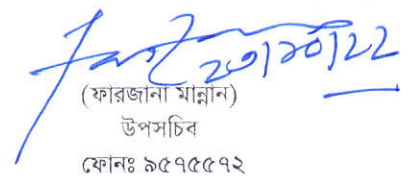 ২৩/১০/২২
(ফারজানা মান্নান)
উপসচিব
ফোনঃ ৯৫৭৫৫৭২